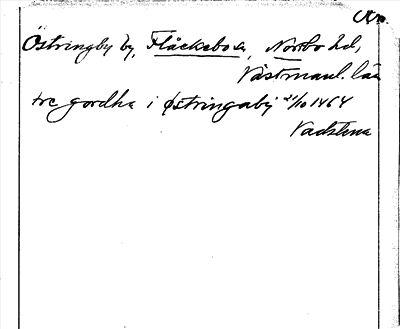 Östringby by, Fläckebo sn, Norrbo hd,
Västmanl. län
tre gordha i østringaby 21/10 1464
Vadstena